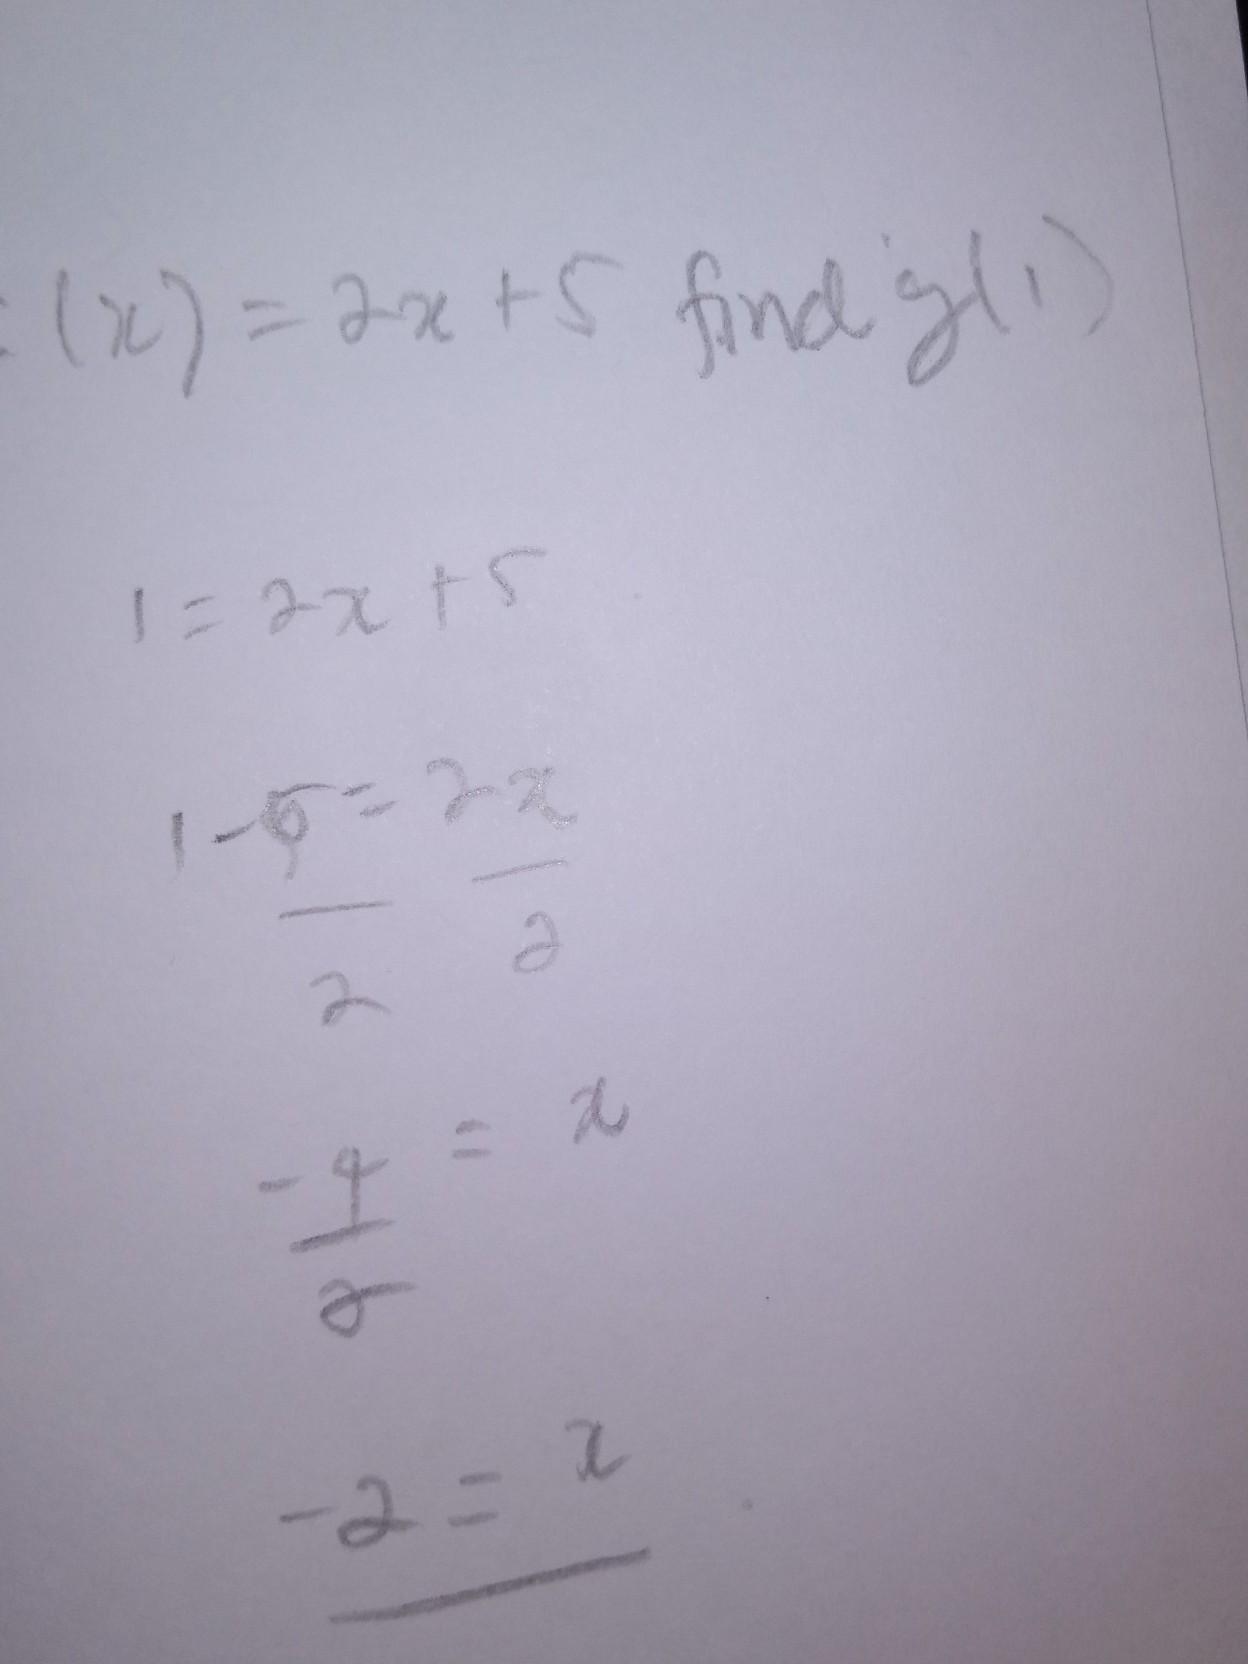 (x) = 2x + 5 find g(1)
1 = 2x + 5
1 - 5 = 2x
2 2
-4 = x
2
-2 = x